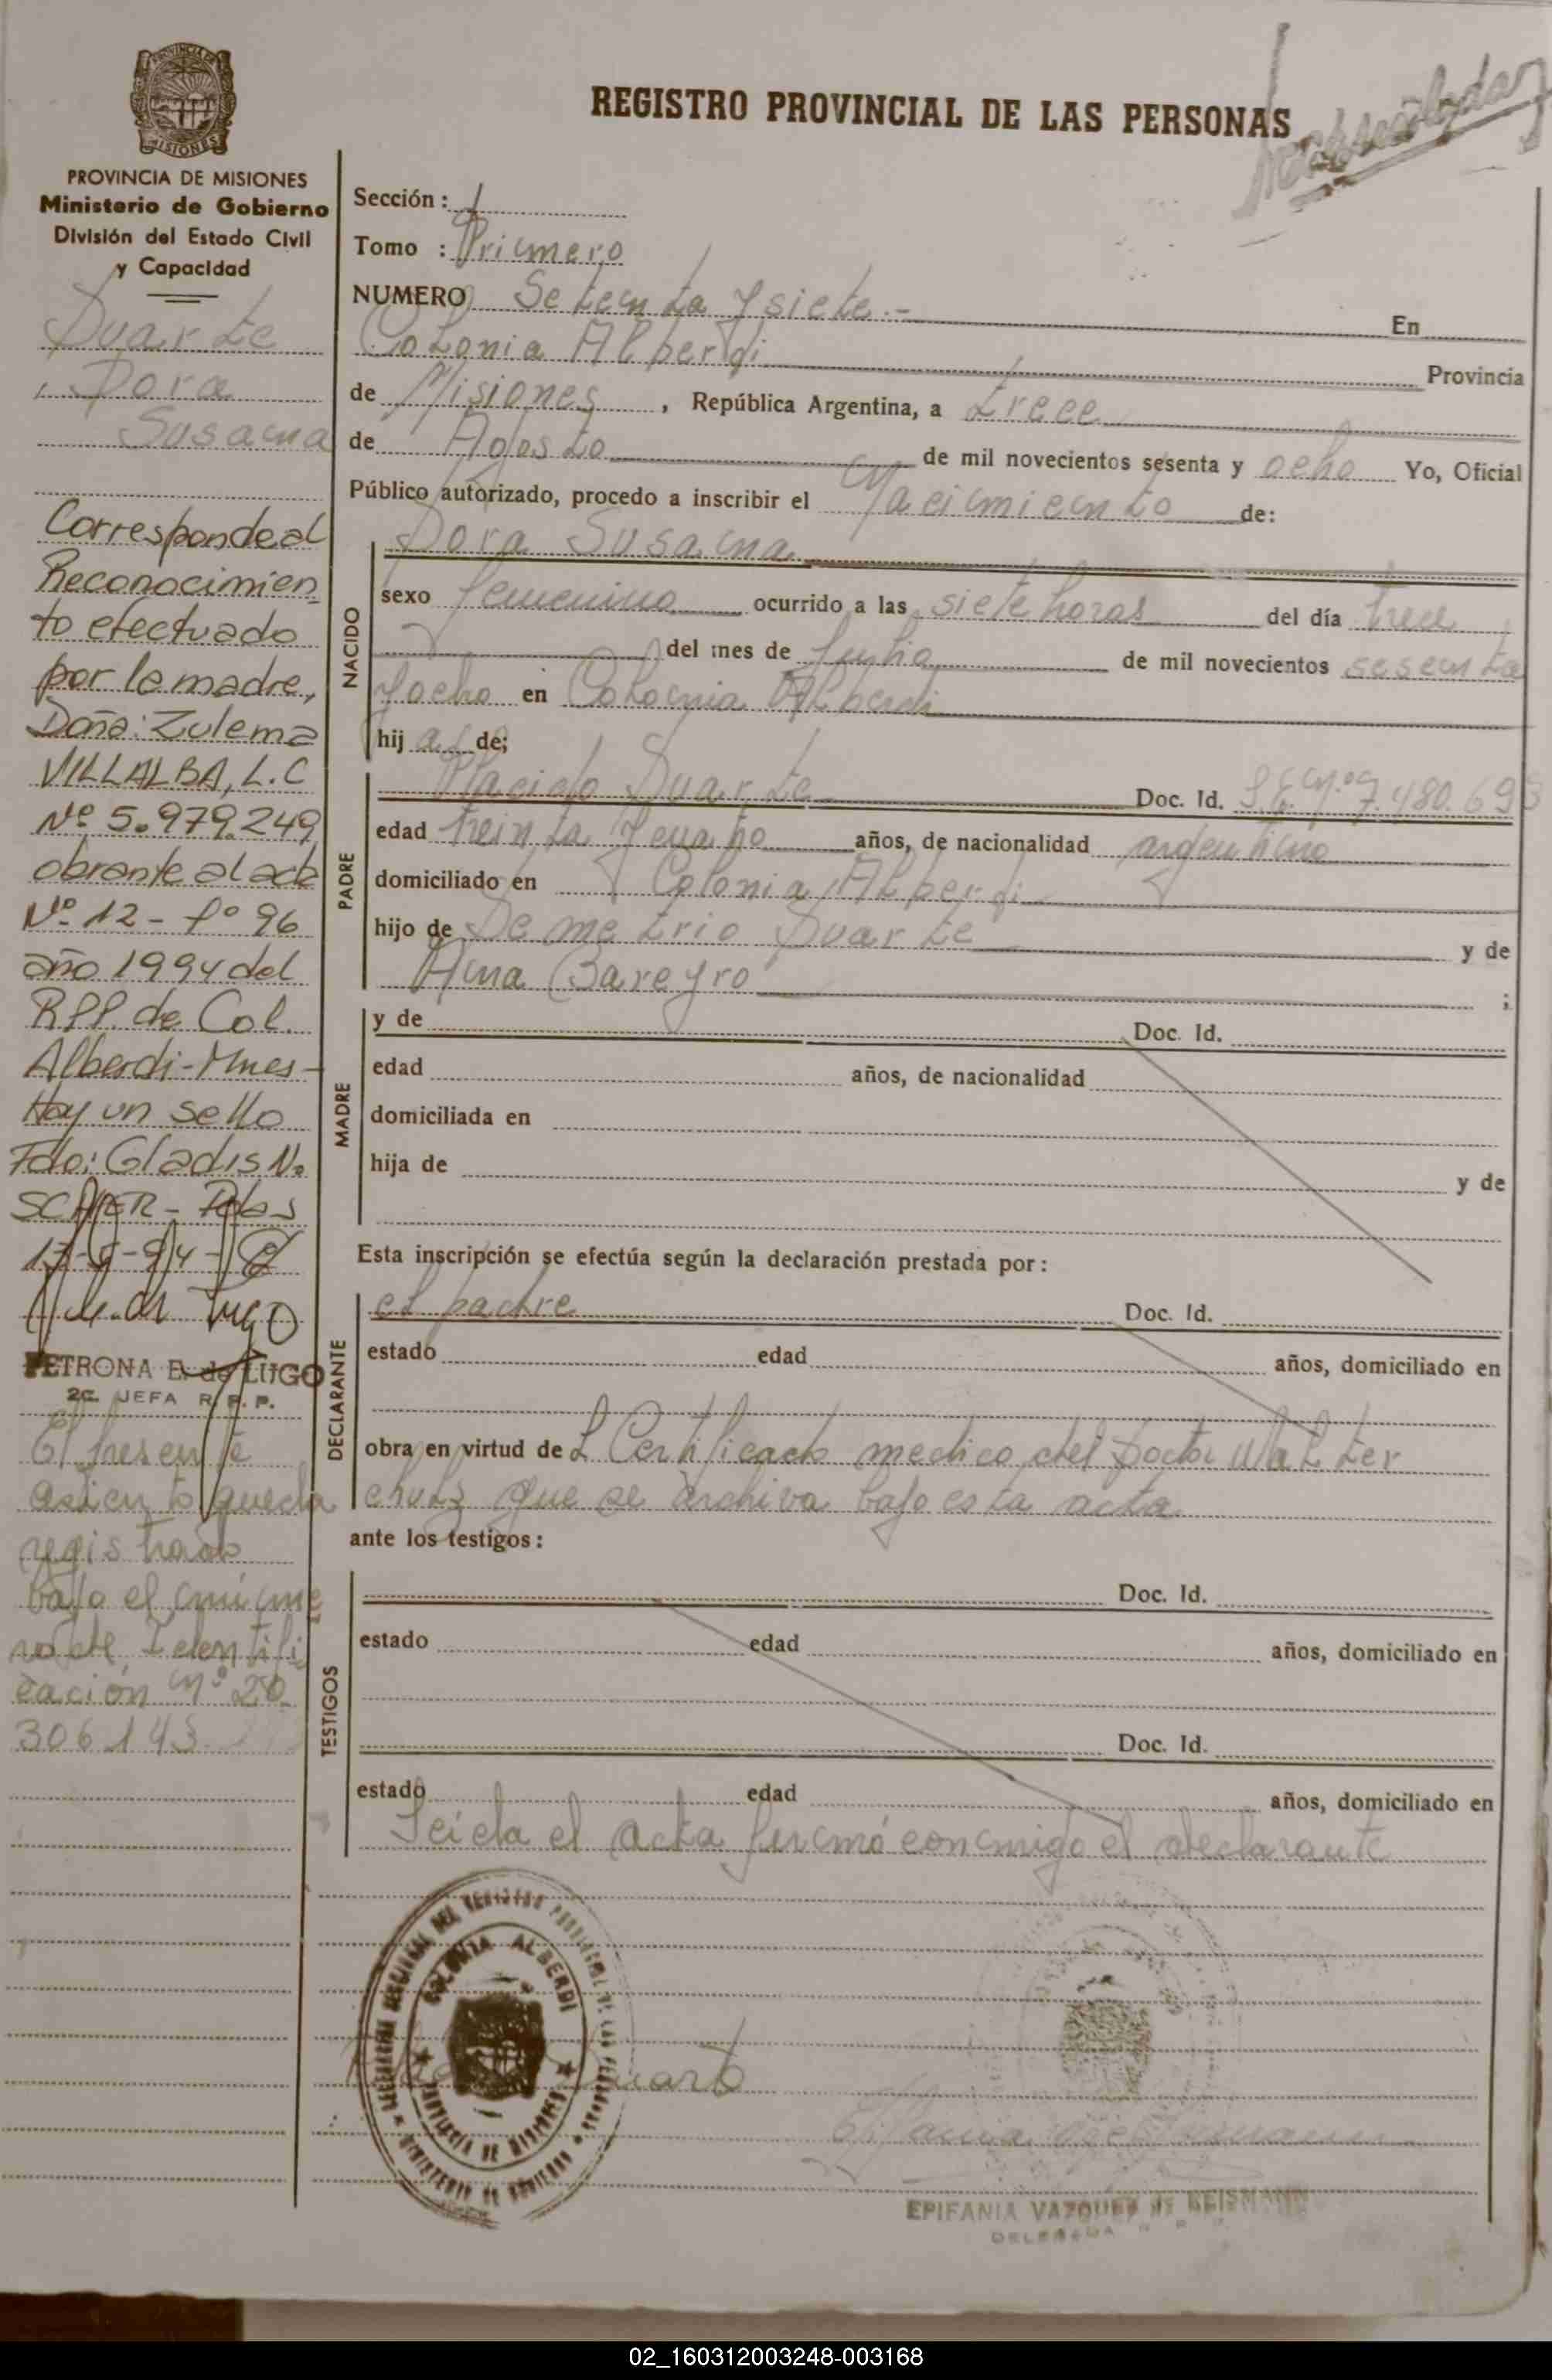 MISIONES
PROVINCIA DE MISIONES
Ministerio de Gobierno
División del Estado Civil
y Capacidad
Duarte
Dora
Susana
Corresponde al
Reconocimien
to efectuado
por la madre,
Doña: Zulema
VILLALBA, L.C
Nº 5.979.249
obrante al acta
Nº 12 - fº 96
año 1994 del
RPP. de Col.
Alberdi-Mnes-
Hay un sello
Fdo: Gladis N.
SCHAER - Pdas
PETRONA E. de LUGO
2ª JEFA R. P. P.
El presente
asiento queda
registrado
bajo el núme
ro de Identifi
cación Nº 20
306.143
REGISTRO PROVINCIAL DE LAS PERSONAS
Sección: 1
Tomo : Primero
NUMERO Setenta y siete.- En
Colonia Alberdi Provincia
de Misiones, República Argentina, a trece
de Agosto de mil novecientos sesenta y ocho Yo, Oficial
Público autorizado, procedo a inscribir el Nacimiento de:
Dora Susana
NACIDO
sexo femenino ocurrido a las siete horas del día trece
del mes de Julio de mil novecientos sesenta
y ocho en Colonia Alberdi
hija de;
PADRE
Placido Duarte Doc. Id. L.E. Nº 7.480.693
edad treinta y cuatro años, de nacionalidad argentino
domiciliado en Colonia Alberdi
hijo de Demetrio Duarte y de
Ana Bareyro ;
MADRE
y de Doc. Id.
edad años, de nacionalidad
domiciliada en
hija de y de
Esta inscripción se efectúa según la declaración prestada por:
DECLARANTE
el padre Doc. Id.
estado edad años, domiciliado en
obra en virtud del Certificado medico del Doctor Walter
que se archiva bajo esta acta
ante los testigos:
TESTIGOS
Doc. Id.
estado edad años, domiciliado en
Doc. Id.
estado edad años, domiciliado en
Leida el acta firmó conmigo el declarante
COLONIA ALBERDI
PROVINCIA DE MISIONES
MINISTERIO DE GOBIERNO
Duarte
EPIFANIA VAZQUEZ de REISMANN
DELEGADA
02_160312003248-003168